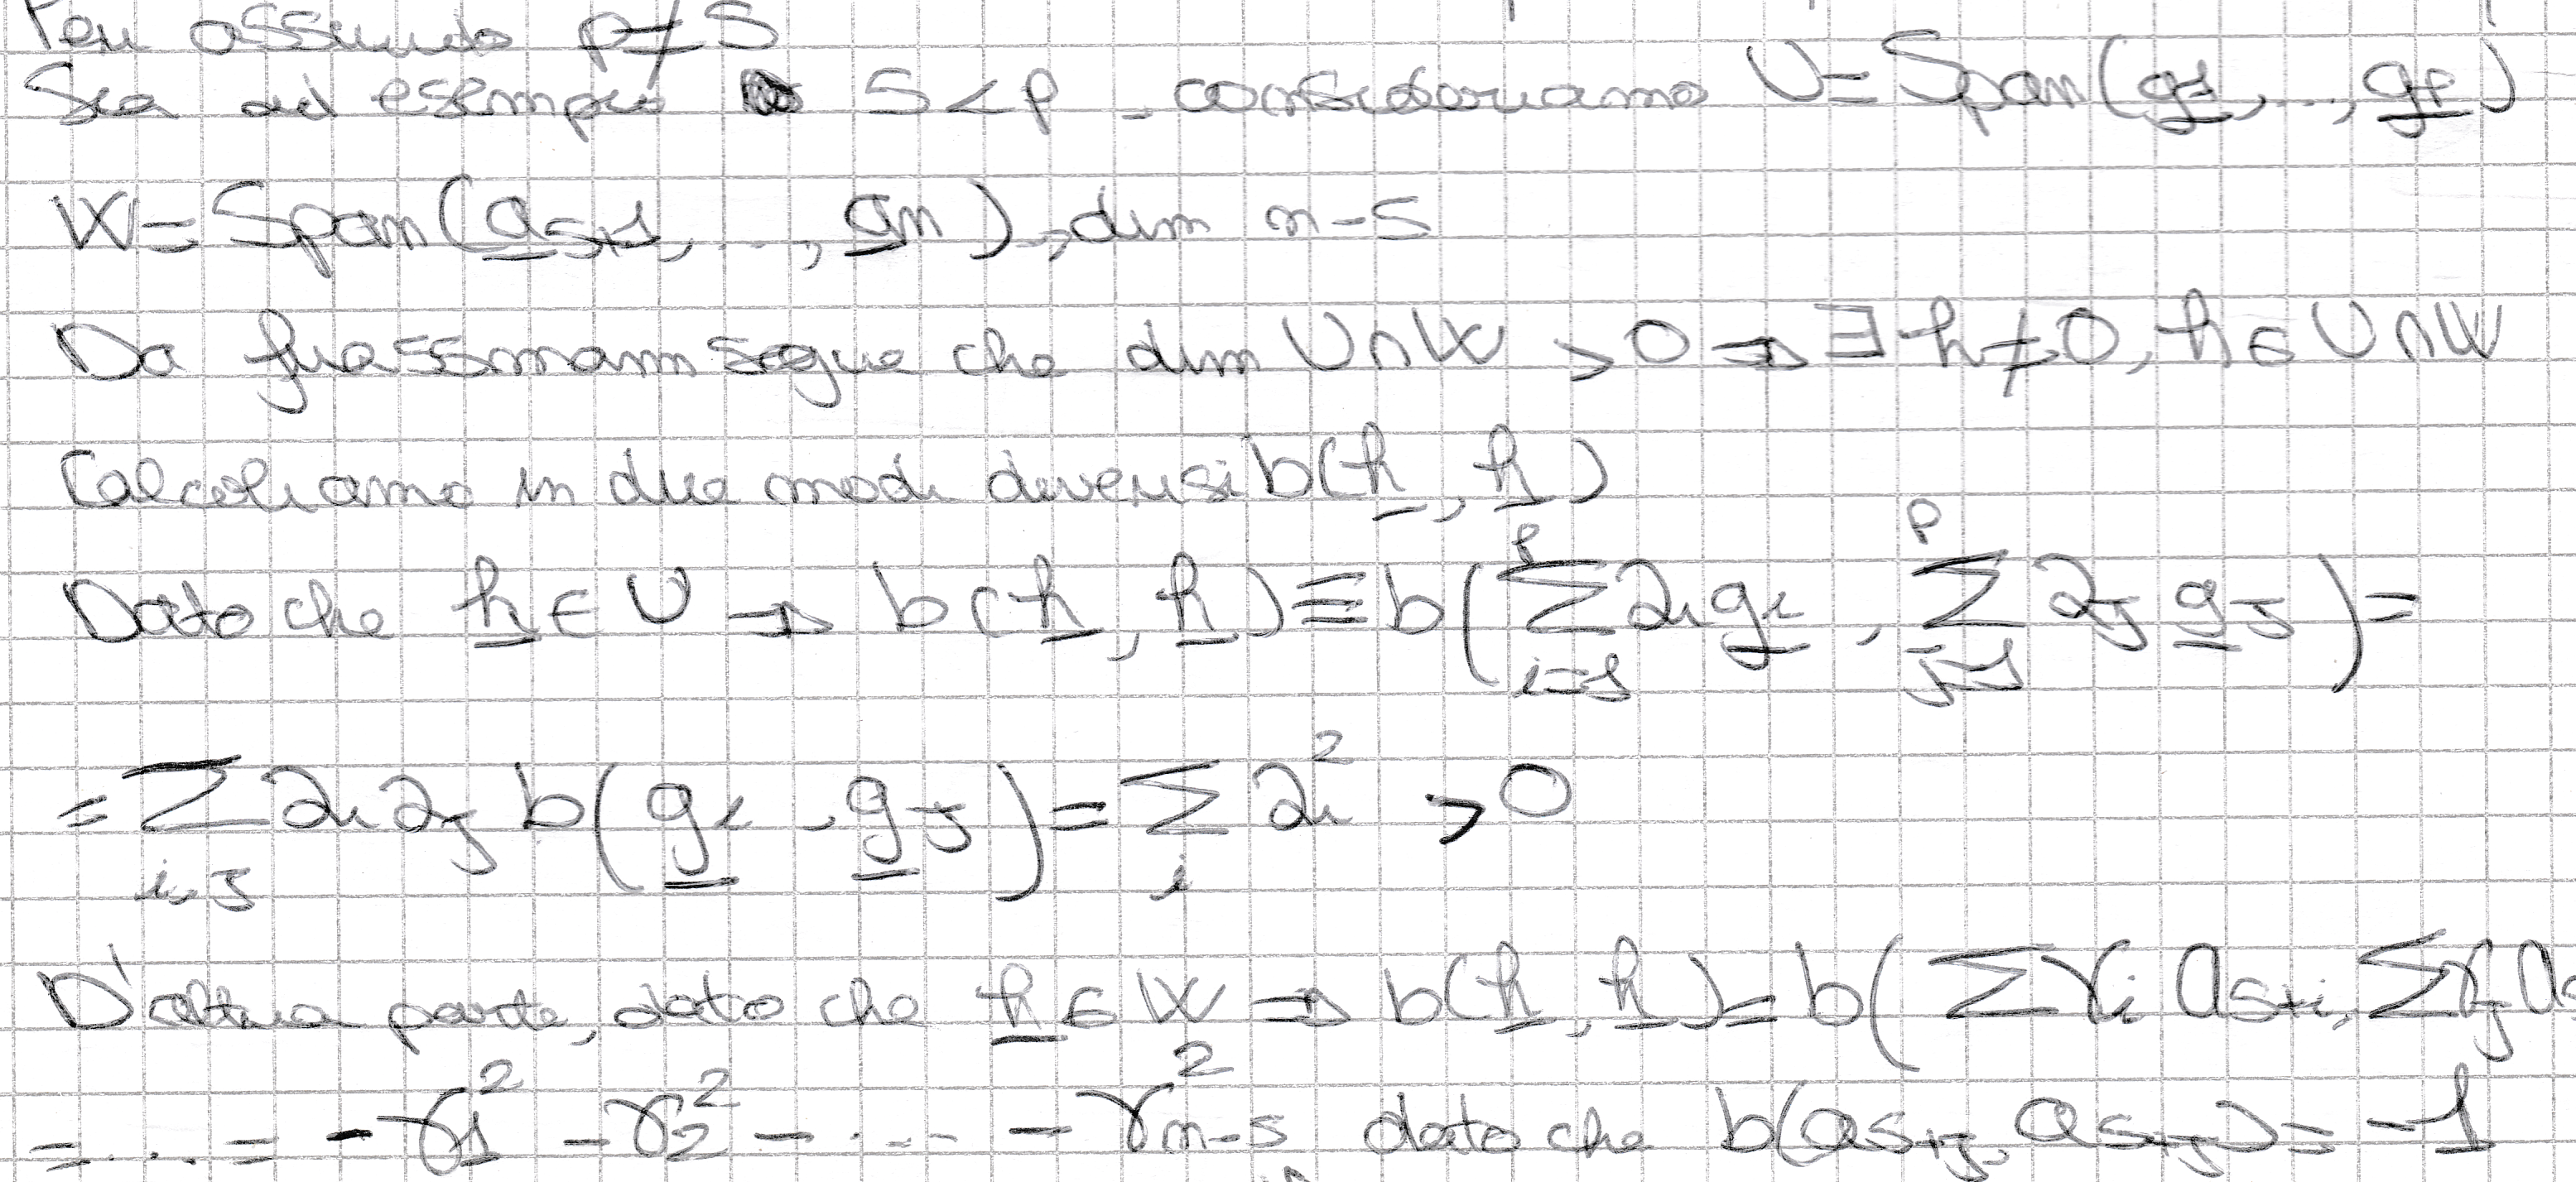 Per assurdo p≠s
Sia ad esempio s<p, consideriamo U=Span(g1,...,gp)
W=Span(as+1,...,an), dim n-s
Da Grassmann segue che dim U∩W >0 ⇒ ∃ h≠0, h∈U∩W
Calcoliamo in due modi diversi b(h,h)
Dato che h∈U ⇒ b(h,h)≡b(∑_{i=1}^{p} λi gi, ∑_{j=1}^{p} λj gj)=
=∑_{i,j} λi λj b(gi,gj)=∑_i λi² >0
D'altra parte, dato che h∈W ⇒ b(h,h)=b(∑γi as+i, ∑γj as
=...= -γ1² -γ2² - ... - γn-s² dato che b(as+j, as+j)=-1